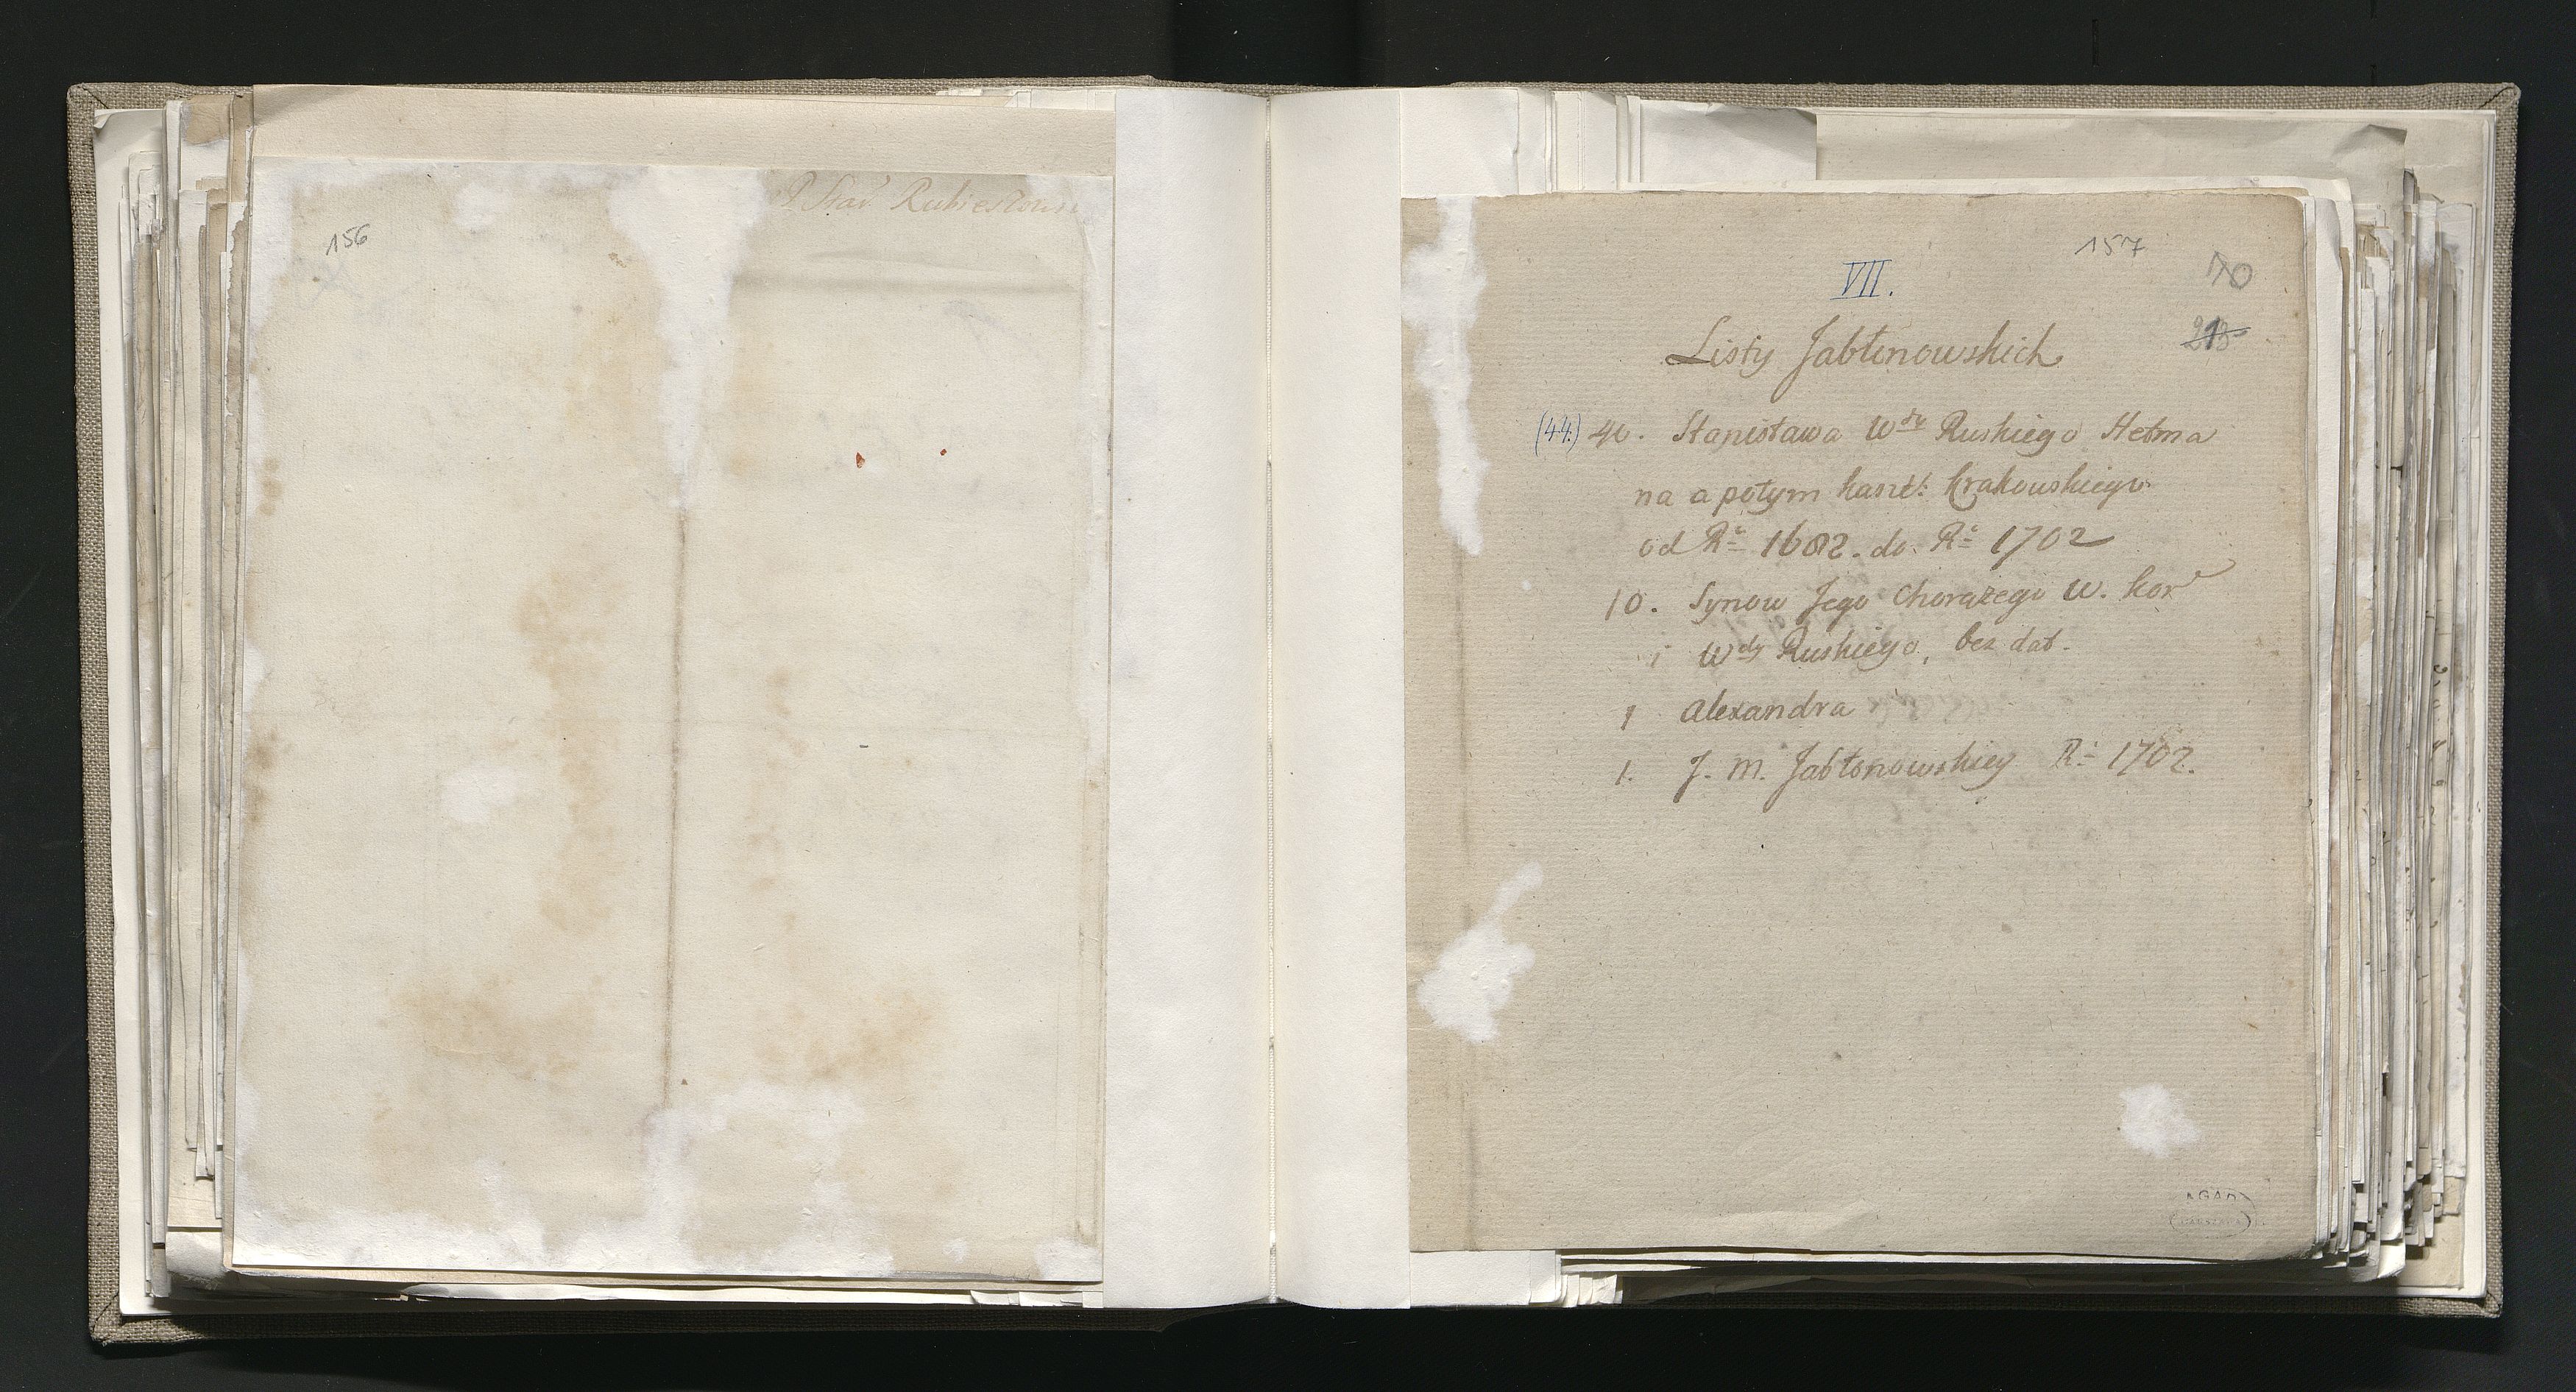 156
P Star. Rubieszows
157
70
VII.
213
Listy Jabłonowskich
(44.) 40. Stanisława Wdy Ruskiego Hetma
na a potym kaszt: krakowskiego
od Rū 1682. do Rū 1702
10. Synow Jego Chorążego W. kor
i Wdy Ruskiego, bez dat.
1 Alexandra
1. J. M. Jabłonowskiey Rū 1702.
AGAD
WARSZAWA